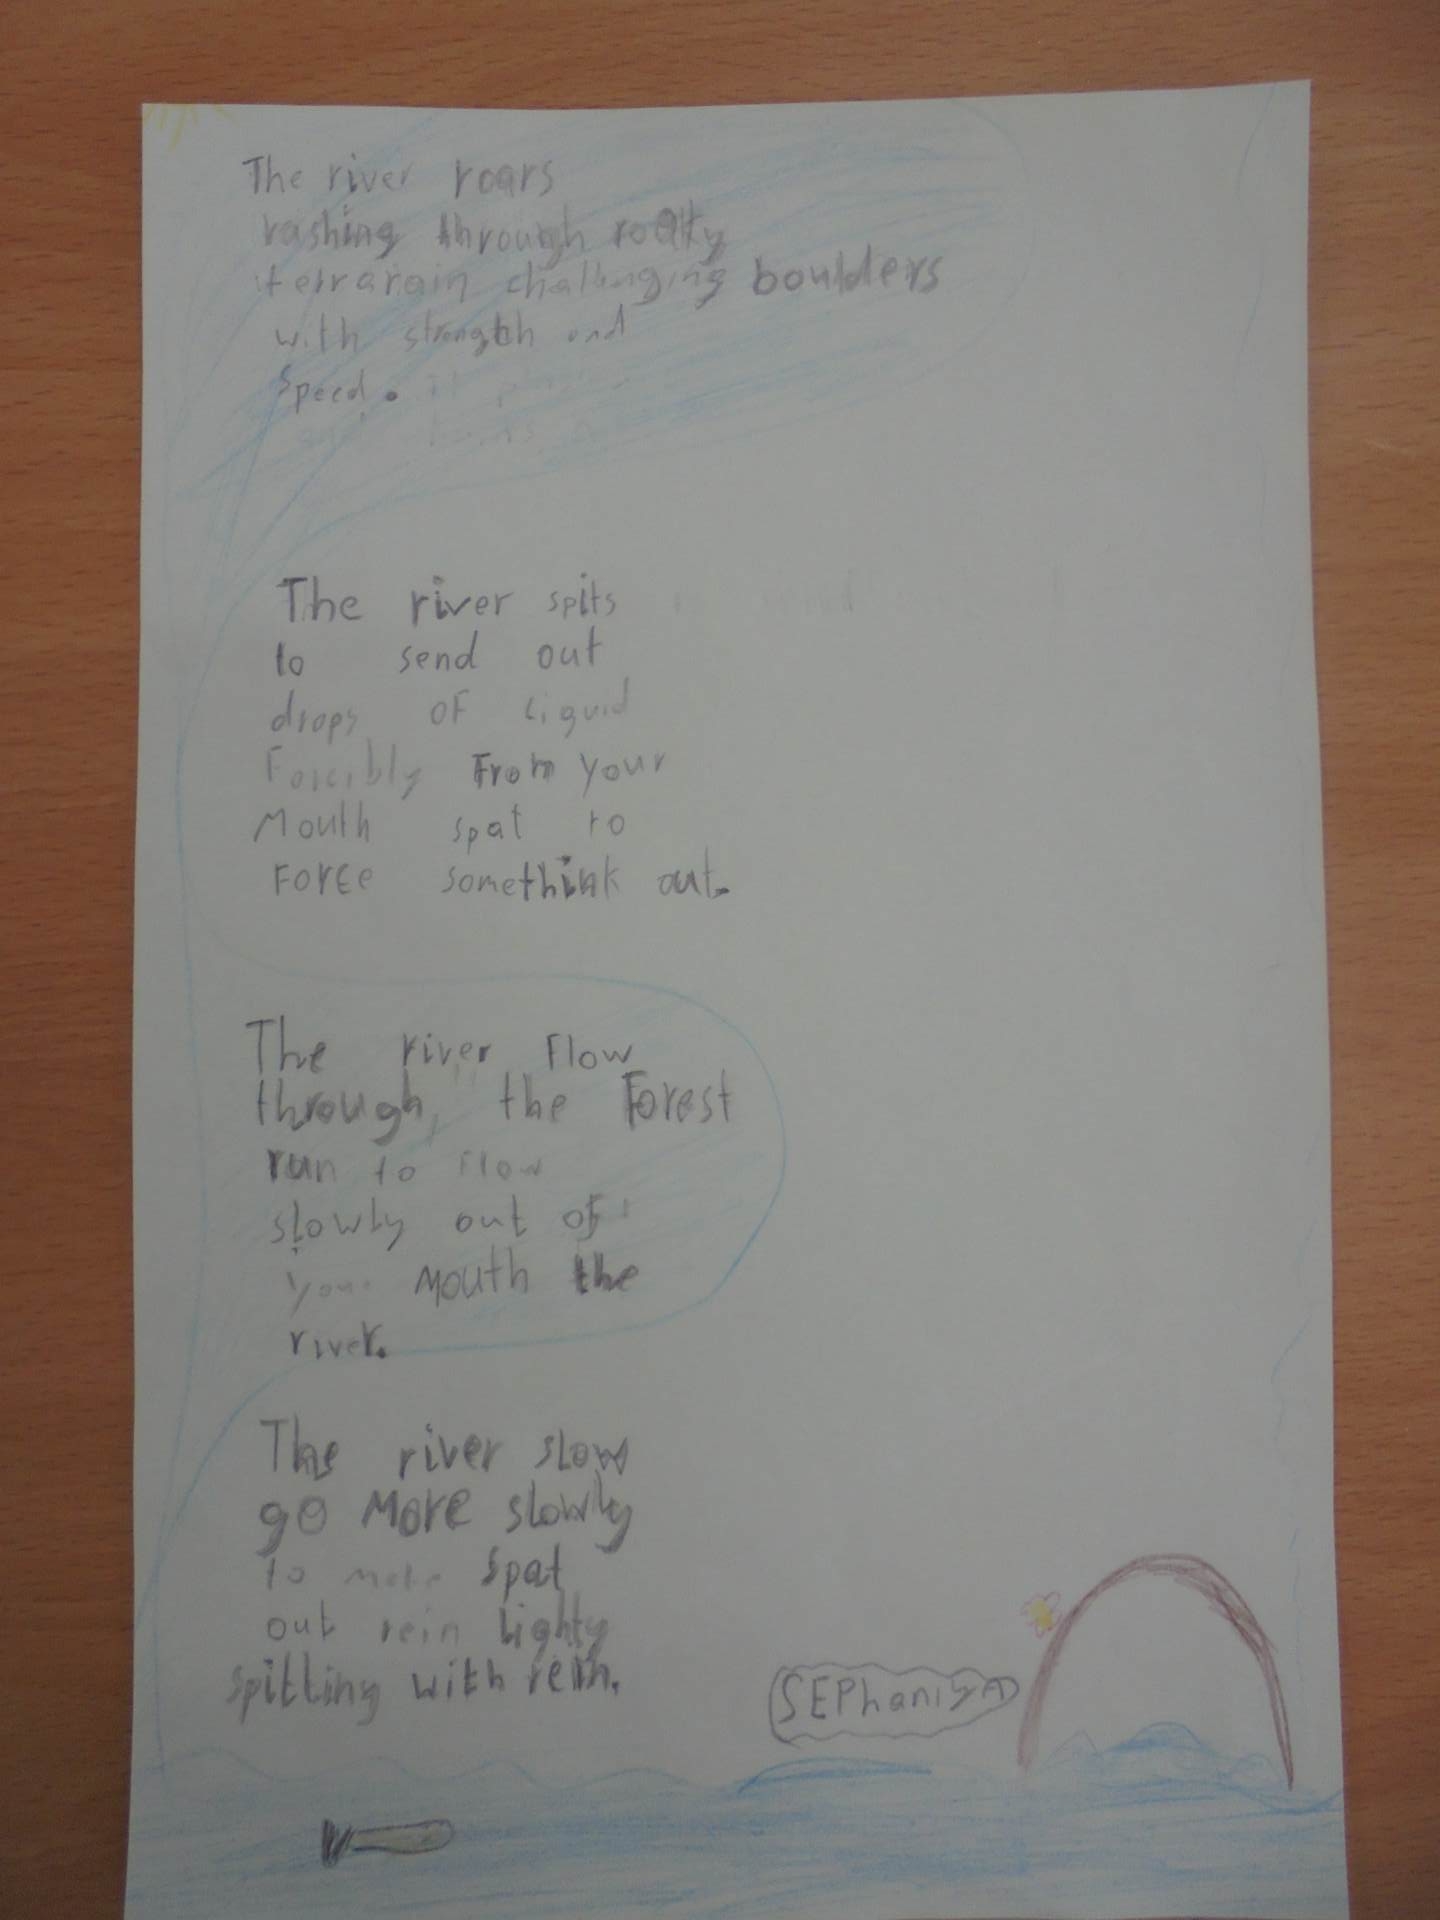 The river roars
rashing through roaky
terrarain challenging boulders
with strength and
speed.
The river spits
to send out
drops of liquid
Forcibly From your
Mouth spat to
Force somethink out.
The river Flow
through, the Forest
run to Flow
slowly out of
your Mouth the
river.
The river slow
go more slowly
to make spat
out rein lighty
spitting with rein.
SEPhaniyA